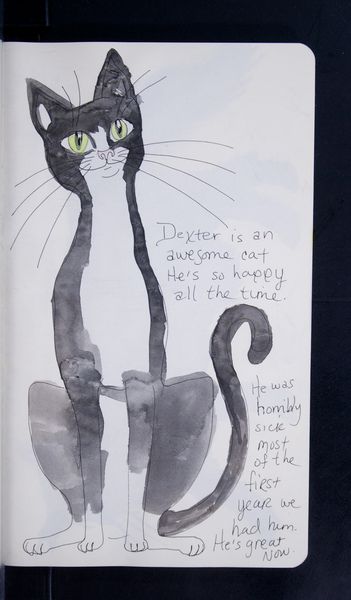 Dexter is an
awesome cat
He's so happy
all the time.
He was
horribly
sick
most
of the
first
year we
had him.
He's great
Now.